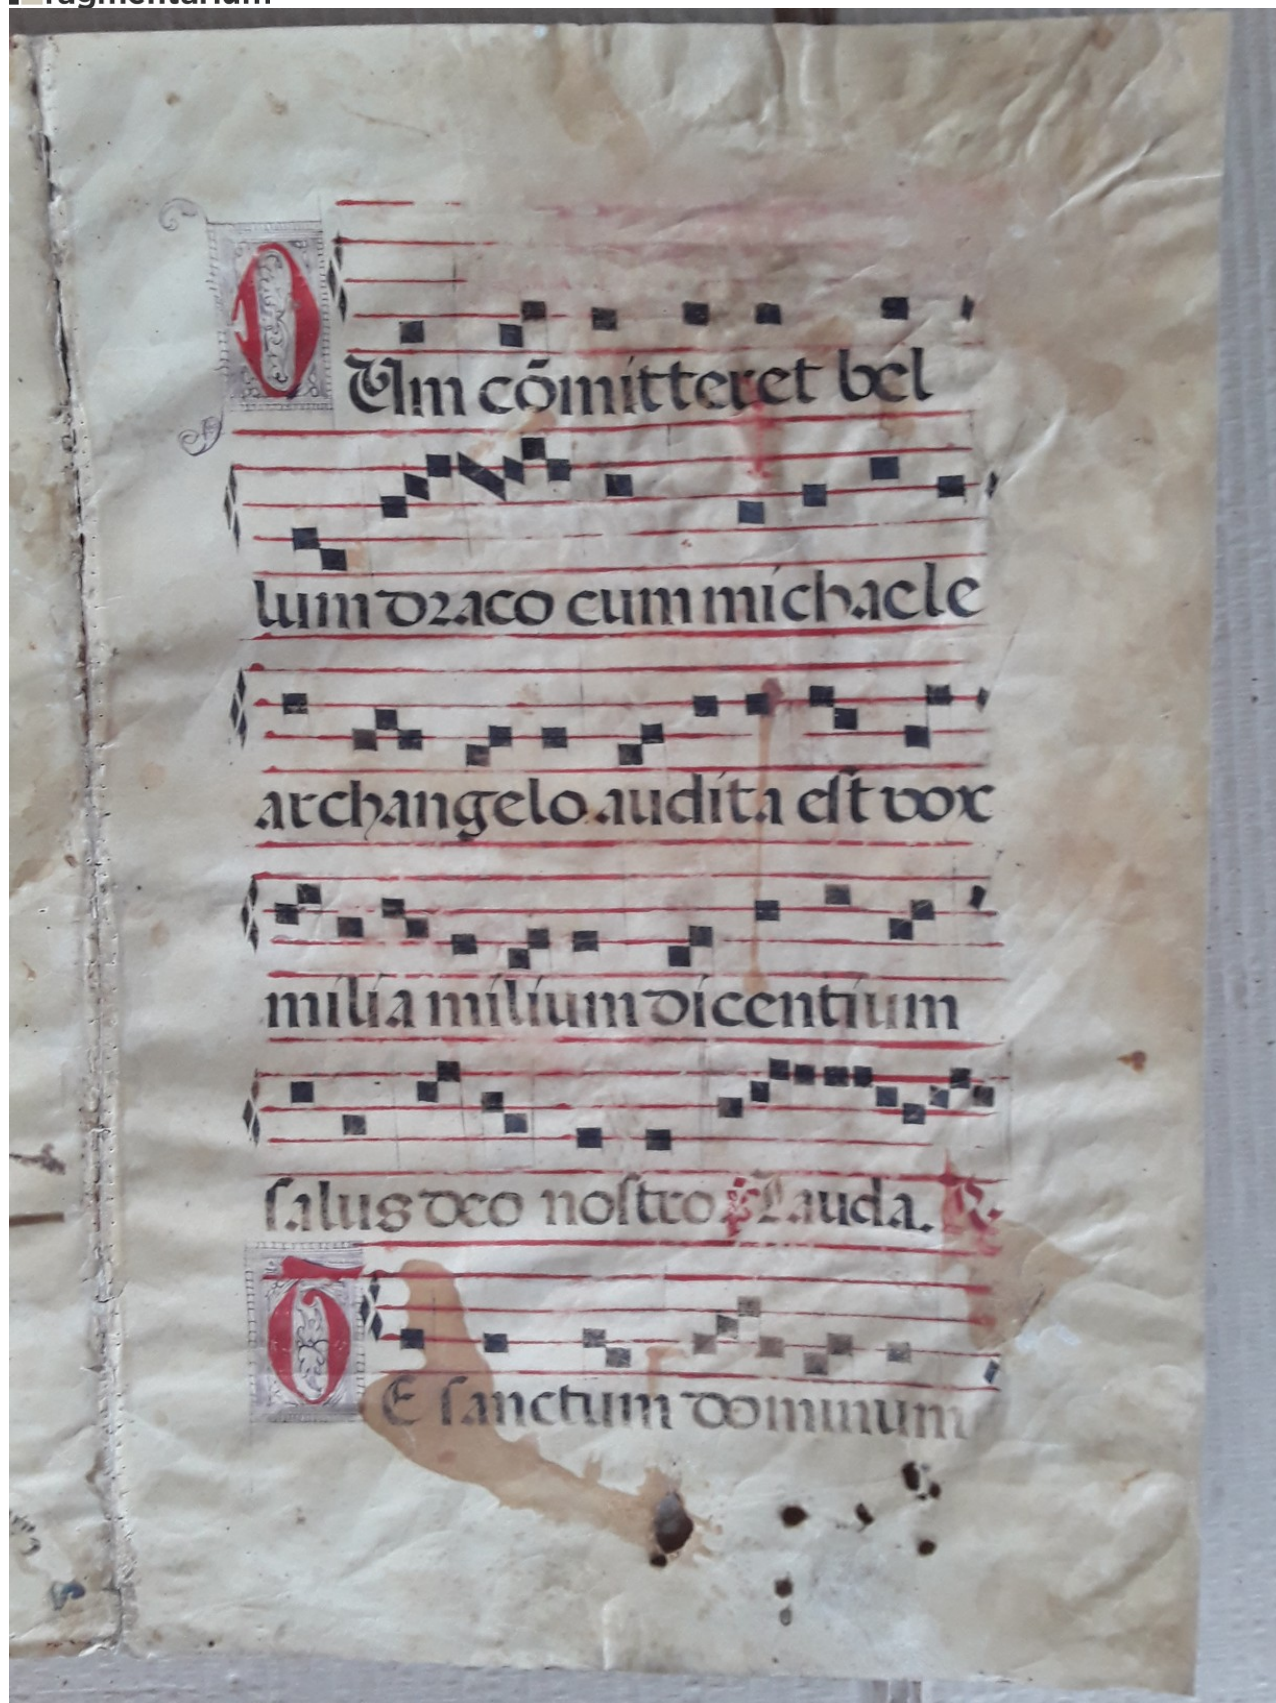 ragmentarium
DUm cōmitteret bel
lum draco cum michaele
archangelo audita eſt vox
milia milium dicentium
ſalus deo noſtro ℣ Lauda. ℟.
TE ſanctum dominum